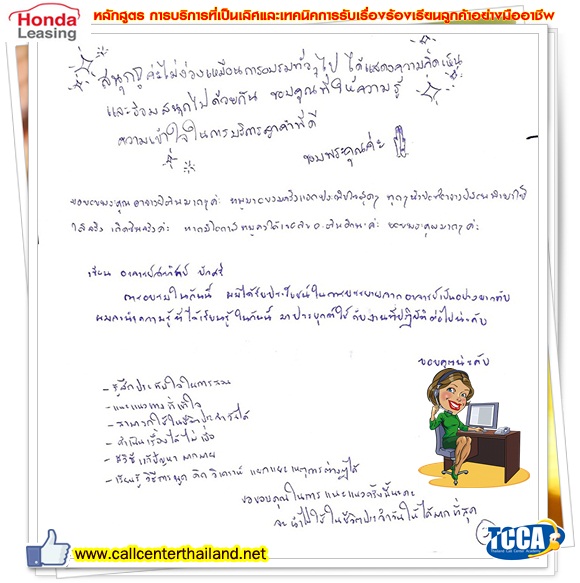 Honda
Leasing
หลักสูตร การบริการที่เป็นเลิศและเทคนิคการรับเรื่องร้องเรียนลูกค้าอย่างมืออาชีพ
สนุกดีค่ะไม่ง่วงเหมือนการอบรมทั่วๆไป ได้แสดงความคิดเห็น
และร่วมสนุกไปด้วยกัน ขอบคุณที่ให้ความรู้
ความเข้าใจในการบริการลูกค้าที่ดี
ขอบพระคุณค่ะ
ขอขอบพระคุณอาจารย์
เรียน อาจารย์
การอบรมในวันนี้ ผมได้รับประโยชน์ในการบรรยายจากอาจารย์เป็นอย่างมากครับ
ผมจะนำความรู้ที่ได้เรียนรู้ในวันนี้ มาประยุกต์ใช้กับงานที่ปฏิบัติต่อไปนะครับ
ขอบคุณนะครับ
- รู้สึกประทับใจในการสอน
- แนะแนวทางที่เข้าใจ
- สามารถใช้ในชีวิตประจำวันได้
- ดำเนินเรื่องได้ไม่เบื่อ
- มีวิธีแก้ปัญหามากมาย
- เรียนรู้ วิธีการพูด คิด วิเคราะห์ แยกแยะ เหตุการต่างๆได้
ขอขอบคุณในการแนะแนวครั้งนี้นะคะ
จะนำไปใช้ในชีวิตประจำวันให้ได้มากที่สุด
www.callcenterthailand.net
TCCA
Thailand Call Center Academy